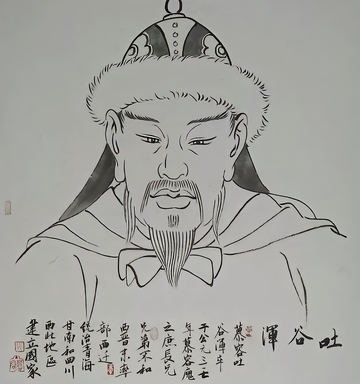 吐谷渾
慕容吐
谷渾卒
于公元三一七
年慕容廆
之庶長兄
兄弟不和
西晋末率
部西迁
统治青海
甘南和四川
西北地区
建立國家